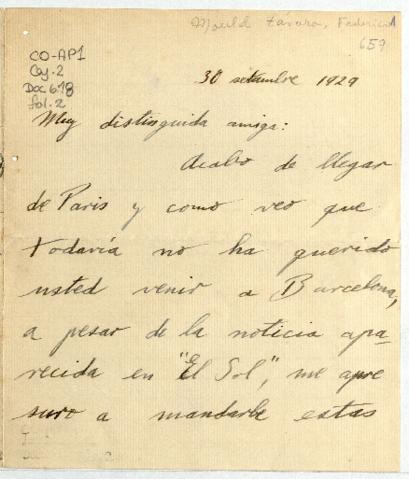 Federico
659
CO-AP1
Caj. 2
Doc 678
fol. 2
30 setembre 1929
Muy distinguida amiga:
Acabo de llegar
de Paris y como veo que
todavía no ha querido
usted venir a Barcelona,
a pesar de la noticia apa-
recida en "El Sol", me apre
suro a mandarle estas